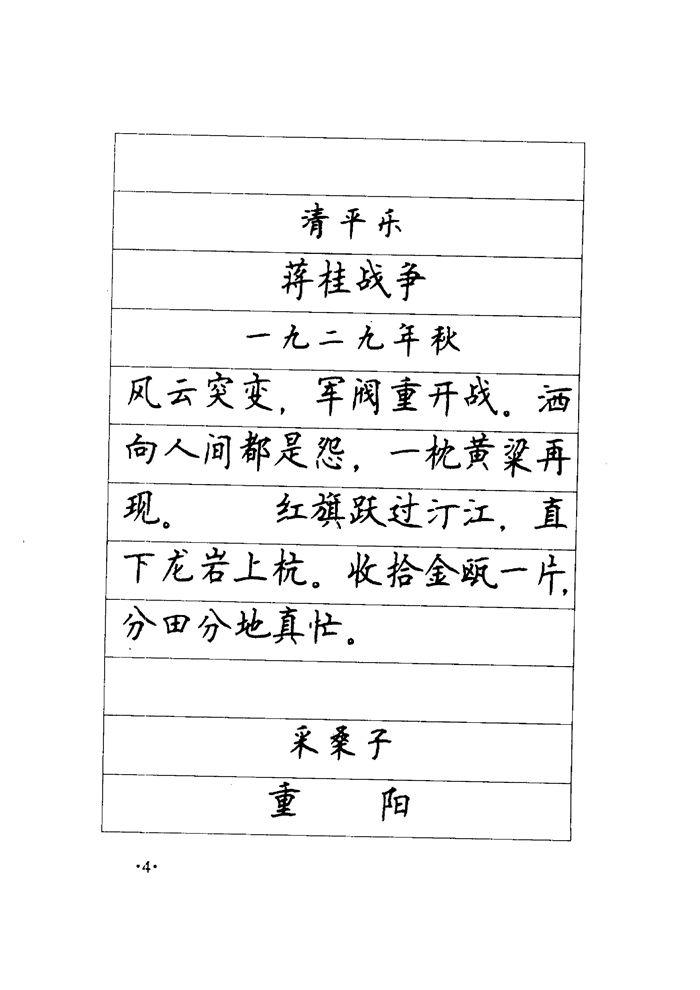 清平乐
蒋桂战争
一九二九年秋
风云突变，军阀重开战。洒
向人间都是怨，一枕黄粱再
现。　　红旗跃过汀江，直
下龙岩上杭。收拾金瓯一片，
分田分地真忙。
采桑子
重　　阳
·4·